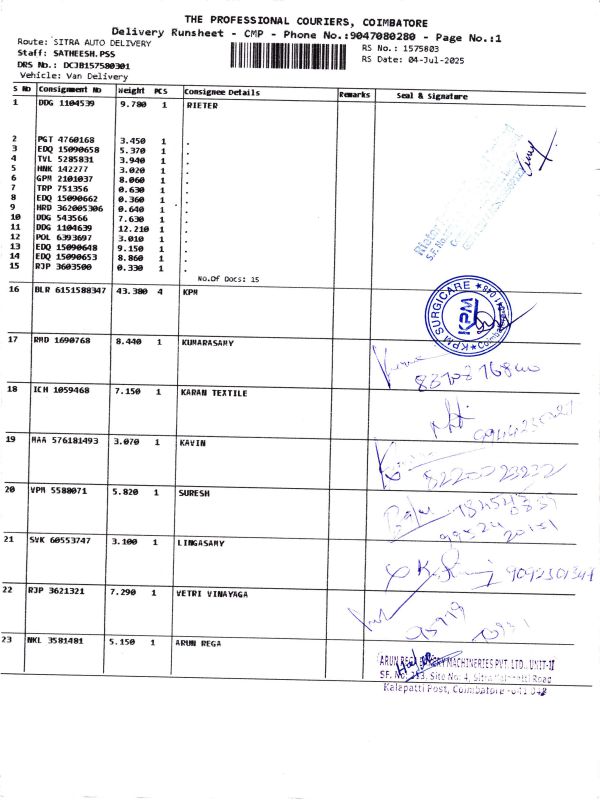 THE PROFESSIONAL COURIERS, COIMBATORE
Delivery Runsheet - CMP - Phone No.:9047080280 - Page No.:1
Route: SITRA AUTO DELIVERY
Staff: SATHEESH.PSS
DRS No.: DCJB157580301
Vehicle: Van Delivery
RS No.: 1575803
RS Date: 04-Jul-2025
S No Consignment No Weight PCS Consignee Details Remarks Seal & Signature
1 DDG 1104539 9.780 1 RIETER
2 PGT 4760168 3.450 1 .
3 EDQ 15090658 5.370 1 .
4 TVL 5285831 3.940 1 .
5 HNK 142277 3.020 1 .
6 GPM 2101037 8.060 1 .
7 TRP 751356 0.630 1 .
8 EDQ 15090662 0.360 1 .
9 HRD 362005306 0.640 1 .
10 DDG 543566 7.630 1 .
11 DDG 1104639 12.210 1 .
12 POL 6393697 3.010 1 .
13 EDQ 15090648 9.150 1 .
14 EDQ 15090653 8.860 1 .
15 RJP 3603500 0.330 1 .
No.Of Docs: 15
16 BLR 6151588347 43.380 4 KPM
KPM SURGICARE
KPM
17 RMD 1690768 8.440 1 KUMARASAMY
18 ICH 1059468 7.150 1 KARAN TEXTILE
19 MAA 576181493 3.070 1 KAVIN
8220023232
20 VPM 5588071 5.820 1 SURESH
21 SVK 60553747 3.100 1 LINGASAMY
22 RJP 3621321 7.290 1 VETRI VINAYAGA
23 NKL 3581481 5.150 1 ARUN REGA
ARUN REGA MACHINERIES PVT. LTD., UNIT-II
SF. No. 113, Site No: 4, Sitra Kalapatti Road
Kalapatti Post, Coimbatore - 641 048